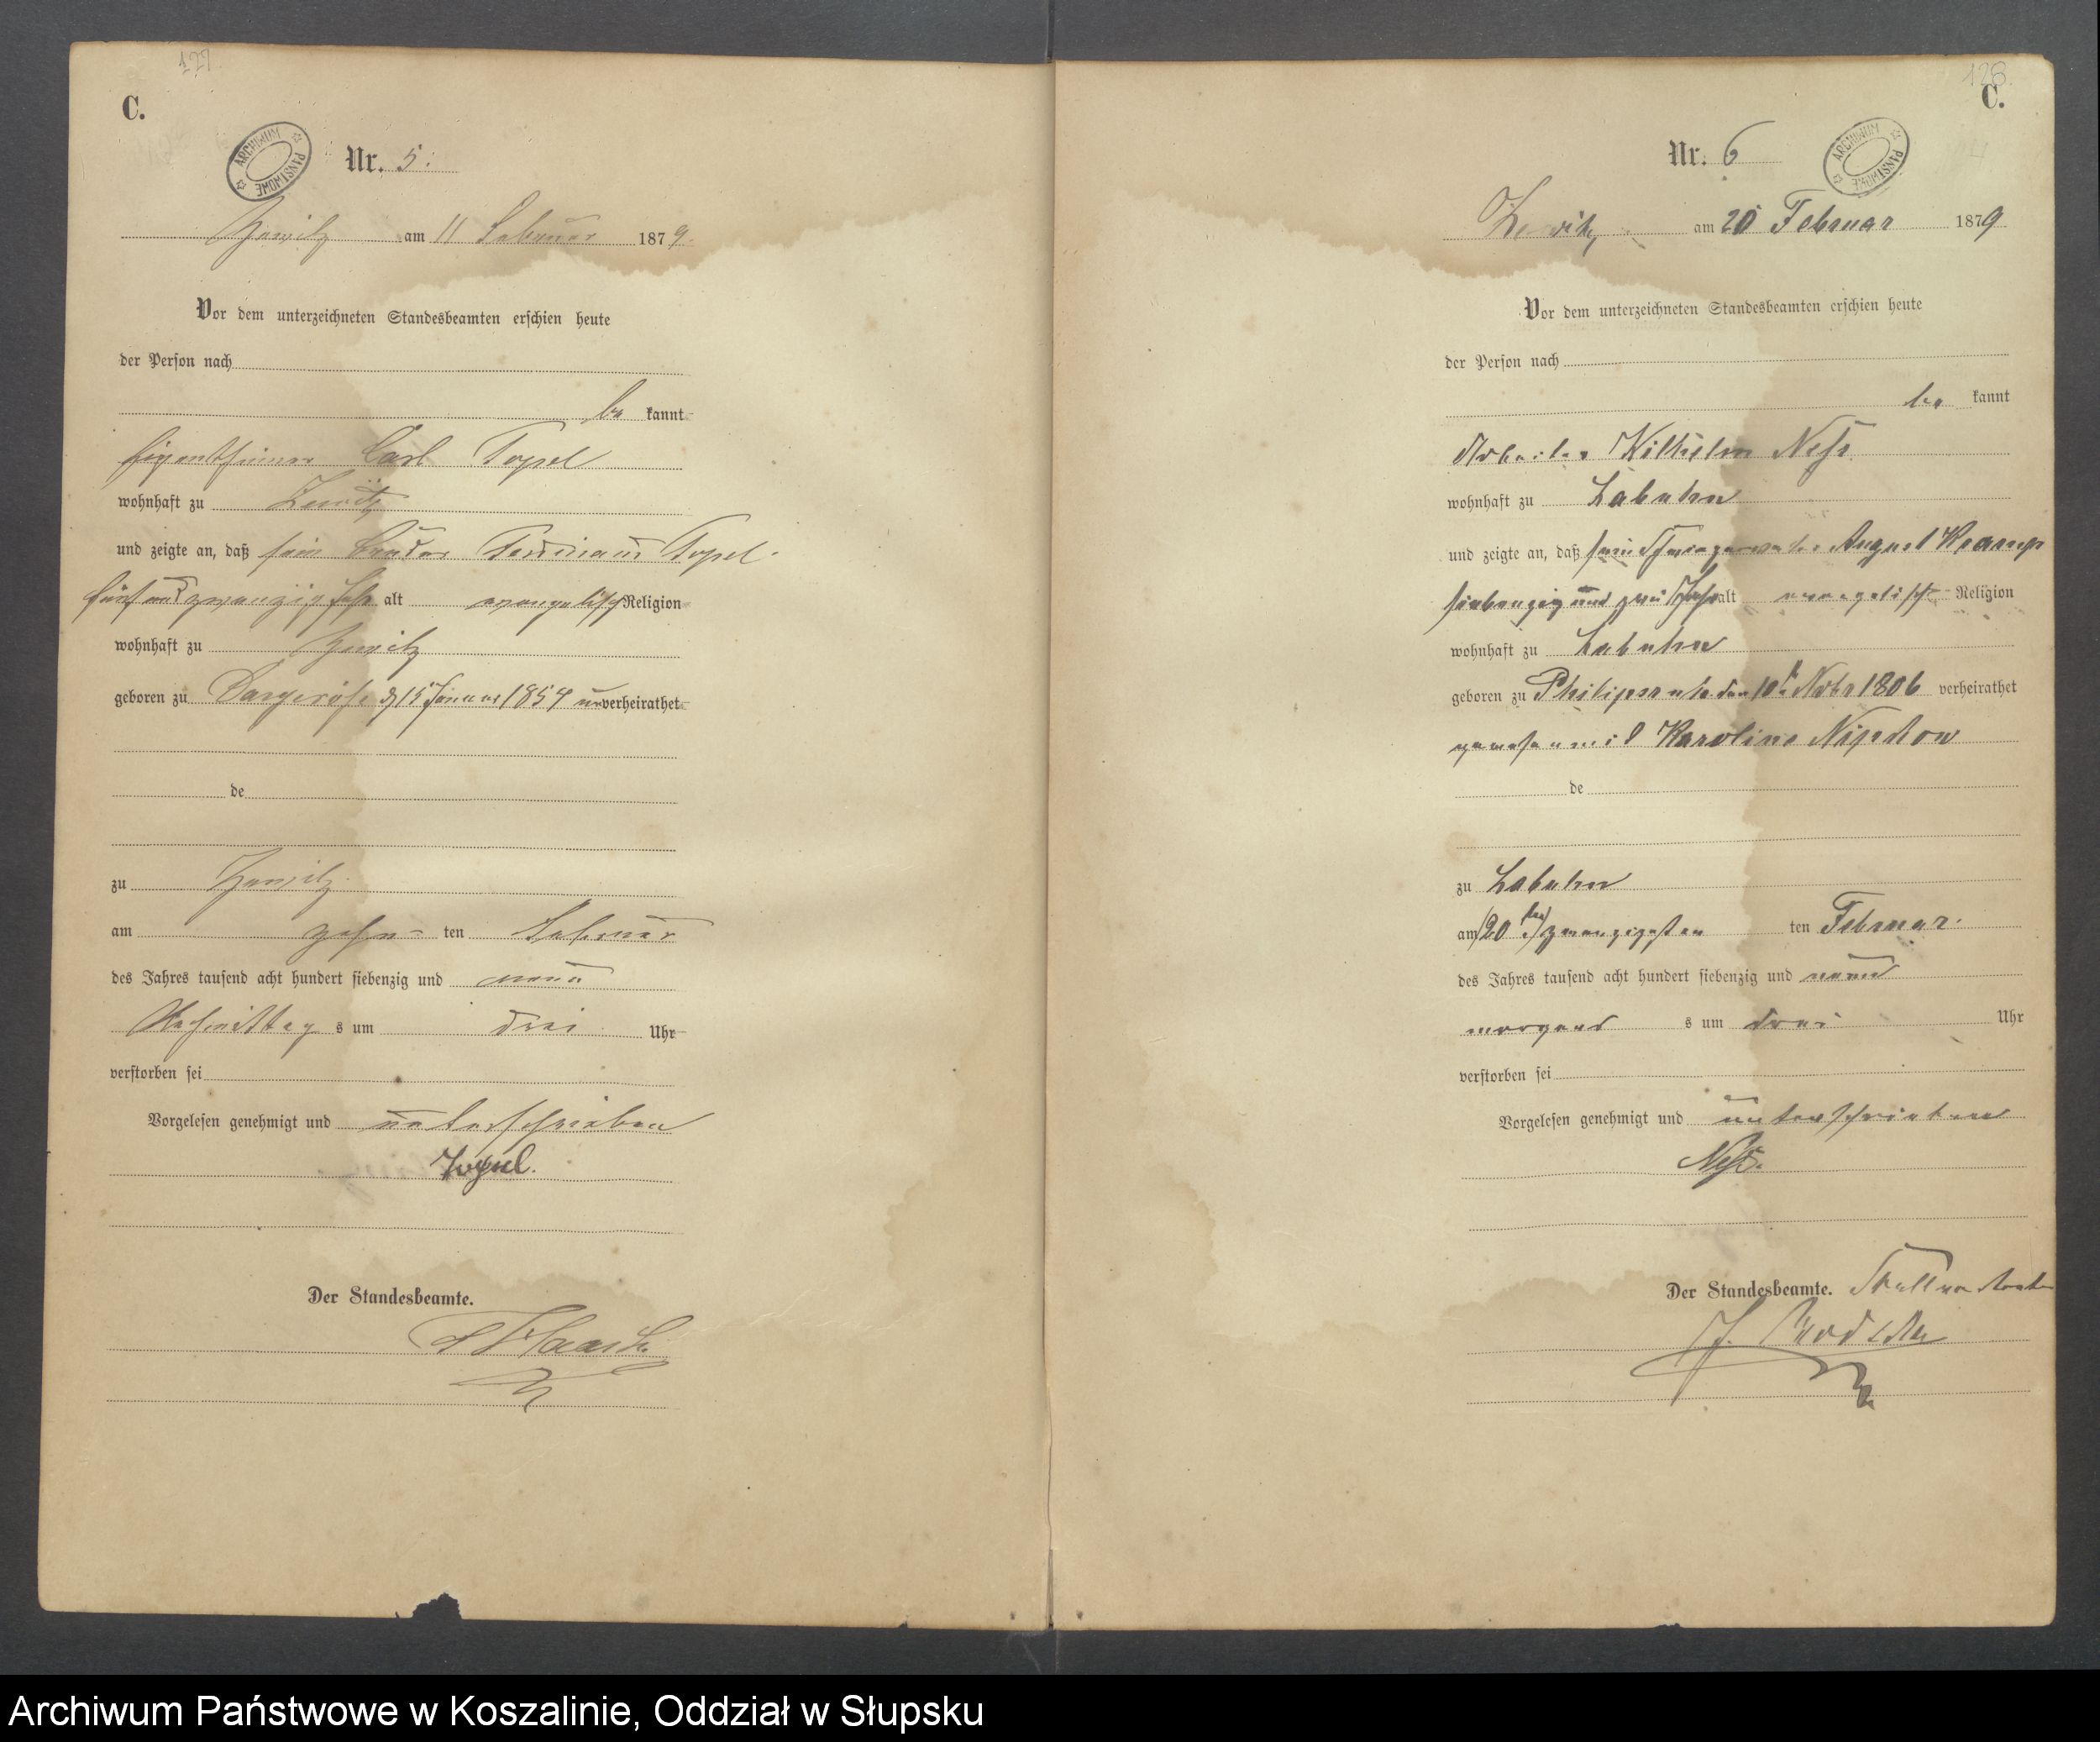 127.
C.
ARCHIWUM PAŃSTWOWE
Nr. 5.
Zewitz am 11 Februar 1879.
Vor dem unterzeichneten Standesbeamten erschien heute
der Person nach
be kannt
Eigenthümer Carl Topel
wohnhaft zu Zewitz
und zeigte an, daß sein Bruder Ferdinand Topel
fünf und zwanzig Jahr alt evangelisch Religion
wohnhaft zu Zewitz
geboren zu Dargeröse d 15 Januar 1854 unverheirathet
de
zu Zewitz
am zehn ten Februar
des Jahres tausend acht hundert siebenzig und neun
Nachmittag s um drei Uhr
verstorben sei
Vorgelesen genehmigt und unterschrieben
Topel.
Der Standesbeamte.
128.
C.
ARCHIWUM PAŃSTWOWE
Nr. 6
Zewitz am 20 Februar 1879
Vor dem unterzeichneten Standesbeamten erschien heute
der Person nach
be kannt
Arbeiter Wilhelm Neß
wohnhaft zu Labuhn
und zeigte an, daß sein Schwiegervater August Kramp
siebenzig und zwei Jahr alt evangelisch Religion
wohnhaft zu Labuhn
geboren zu den 10 Nvbr 1806 verheirathet
gewesen mit Karoline
de
zu Labuhn
am (20ten) zwanzigsten ten Februar.
des Jahres tausend acht hundert siebenzig und neun
morgens s um drei Uhr
verstorben sei
Vorgelesen genehmigt und unterschrieben
Neß.
Der Standesbeamte.
Archiwum Państwowe w Koszalinie, Oddział w Słupsku